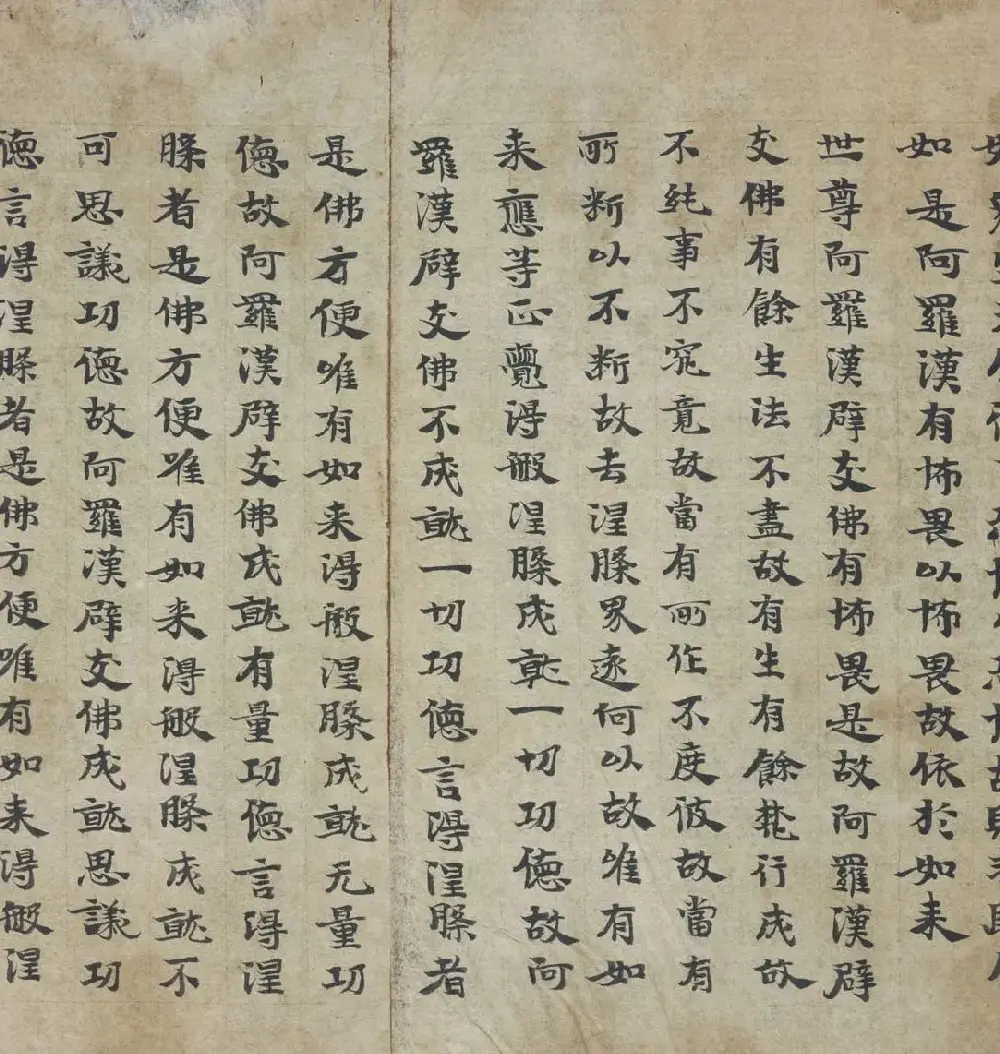 如是阿羅漢有怖畏以怖畏故依於如来
世尊阿羅漢辟支佛有怖畏是故阿羅漢辟
支佛有餘生法不盡故有生有餘梵行成故
不純事不究竟故當有所作不度彼故當有
所断以不断故去涅槃界遠何以故唯有如
来應等正覺得般涅槃成就一切功德故阿
羅漢辟支佛不成就一切功德言得涅槃者
是佛方便唯有如来得般涅槃成就无量功
德故阿羅漢辟支佛成就有量功德言得涅
槃者是佛方便唯有如来得般涅槃成就不
可思議功德故阿羅漢辟支佛成就思議功
德言得涅槃者是佛方便唯有如来得般涅